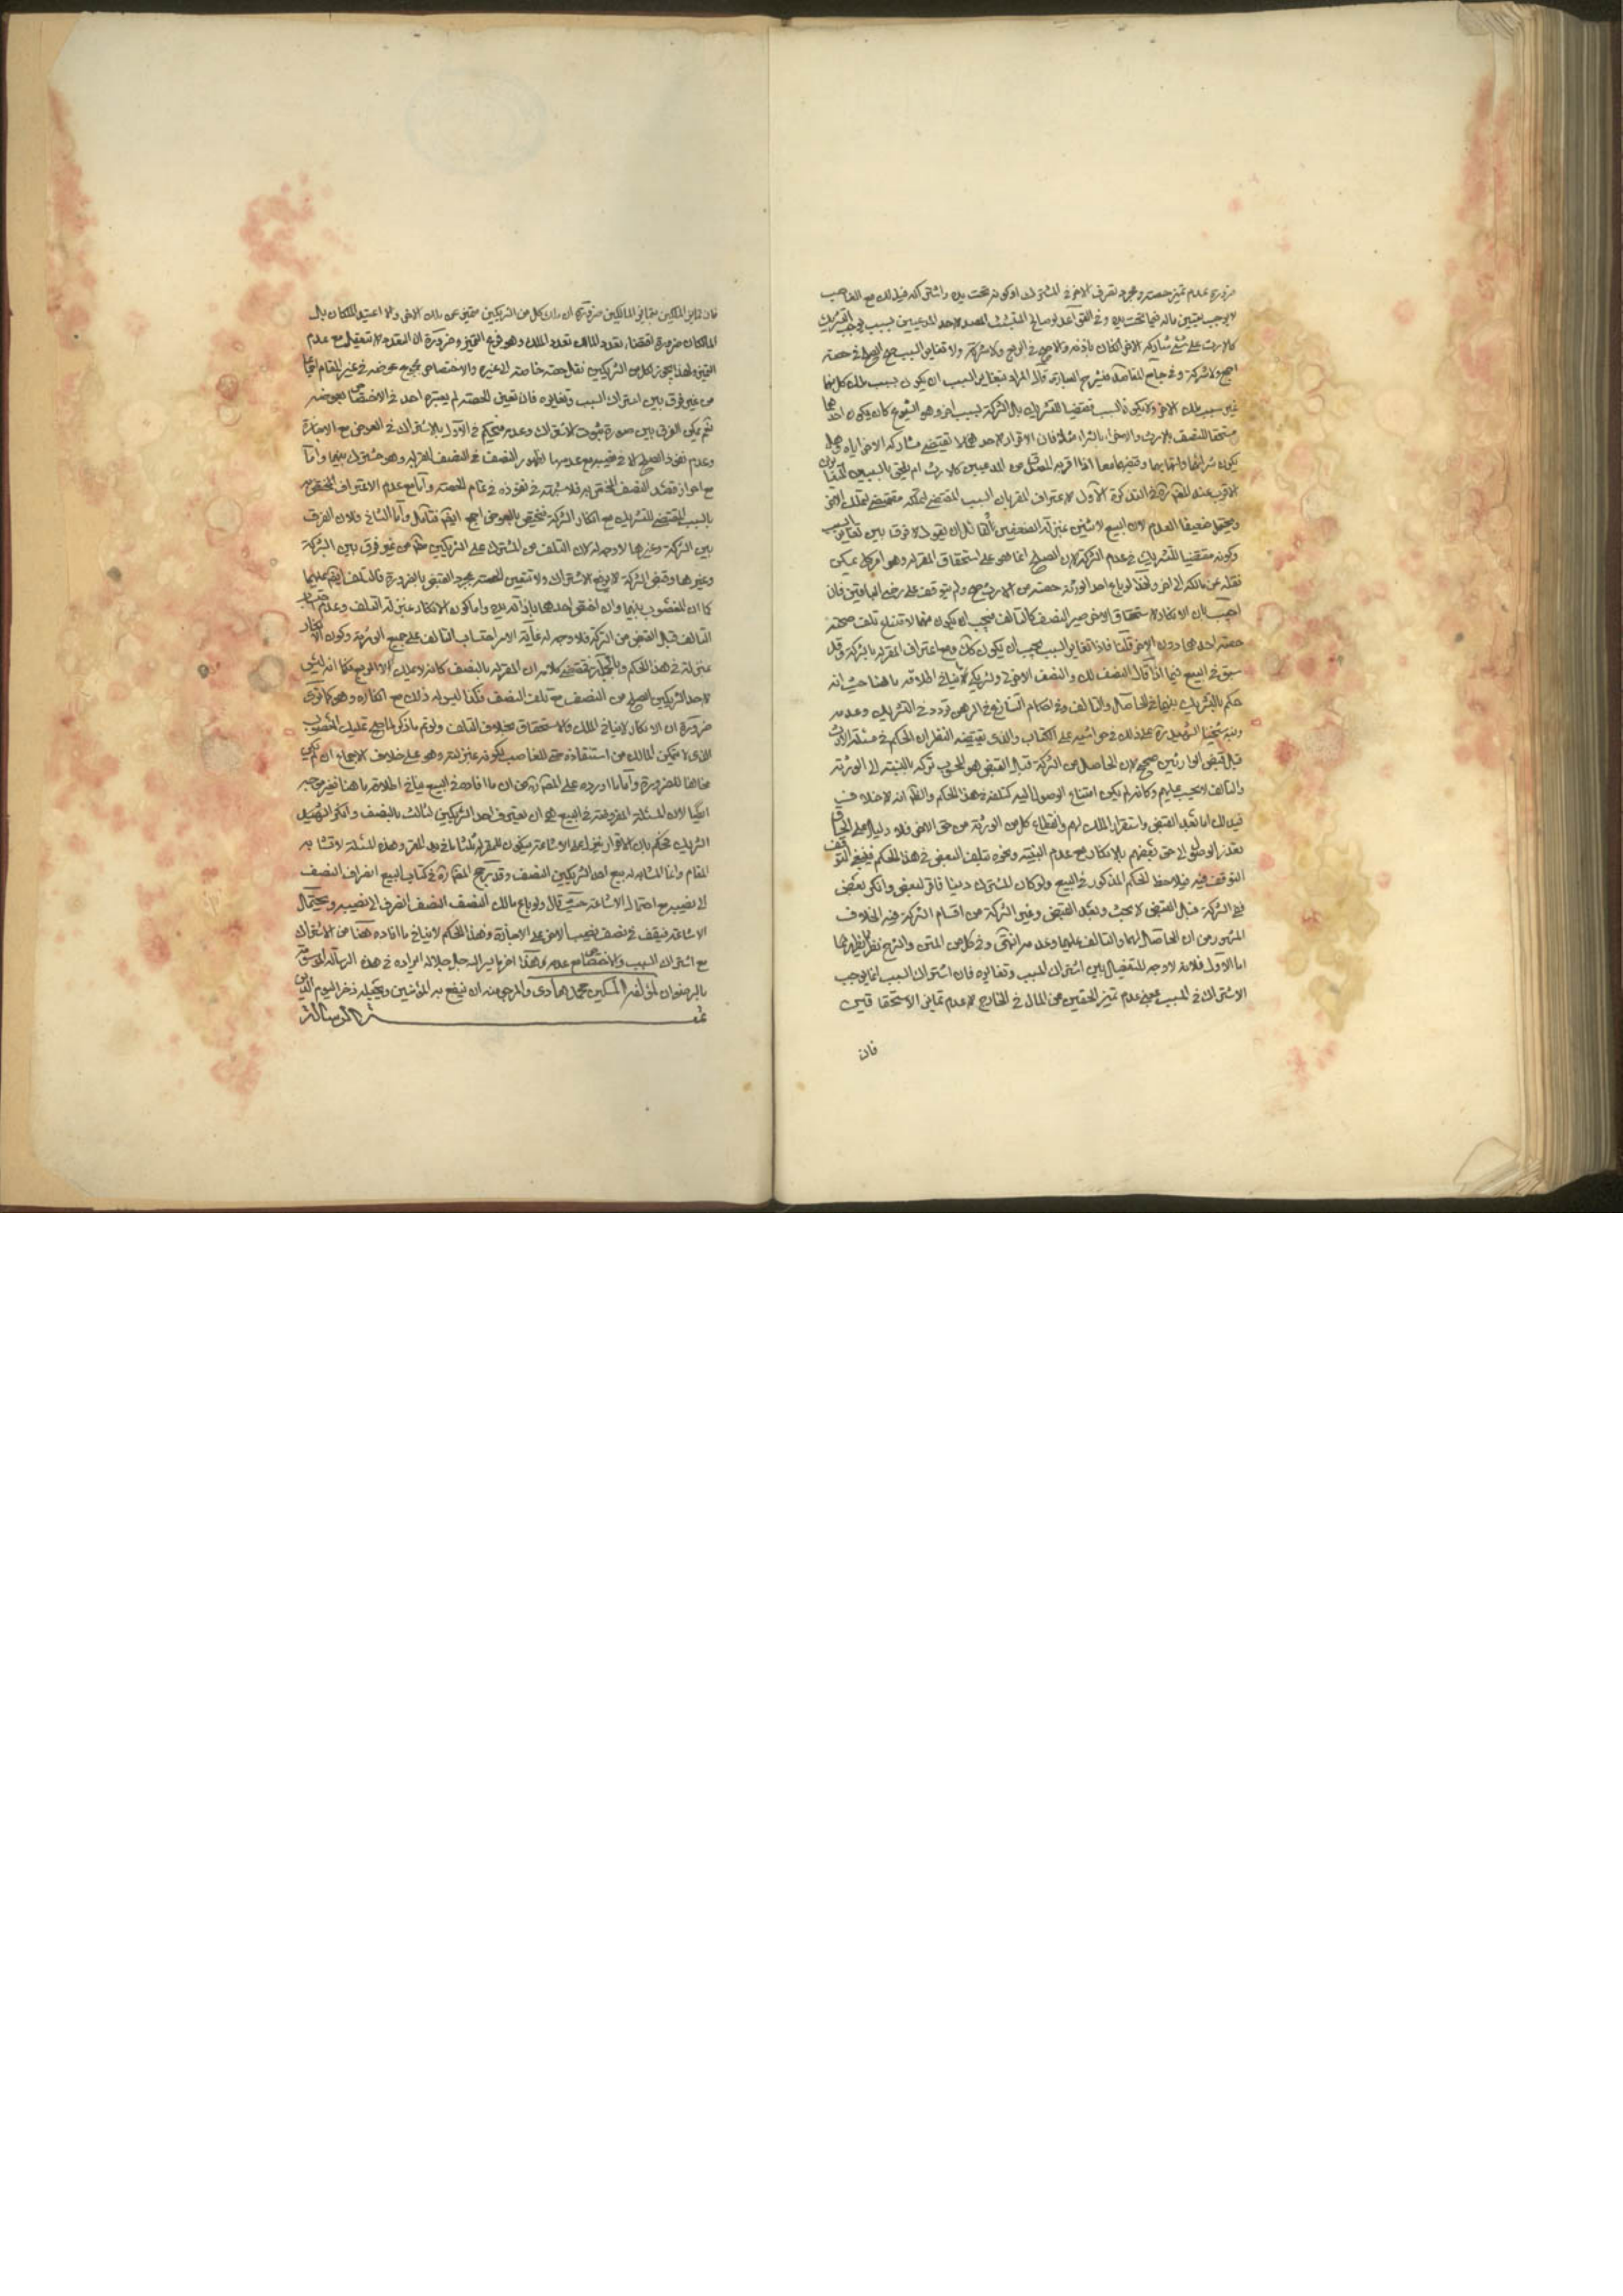 ضرورة عدم تميز حصته ومجرد تصرف الاخر في المشترك او كونه تحت يده واشتراكه فيه لك مع الغاصب
لا يوجب تعيين ماله فيما تحت يده وفي القواعد لو صالح المتشبث المصدق لاحد المدعيين بسبب يوجب التشريك
كالارث على شئ شاركه الاخر ان كان باذنه والا صح في الربع ولا شركة ولا تغاير السبب صح الصلح في حصته
اجمع ولا شركة وفي جامع المقاصد في شرح العبارة قال المراد بتغاير السبب ان يكون سبب ملك كل منهما
غير سبب ملك الاخر ولا يكون السبب مقتضيا للتشريك بل الشركة لسبب اخر وهو الشيوع كان يكون احدهما
مستحقا للنصف بالارث والاخر بالشراء مثلا فان الاقرار لاحدهما لا يقتضي مشاركة الاخر اياه وهل
يكون شرائهما واتهابهما وقبضهما معا اذا اقر به المتشبث من المدعيين كالارث ام يلحق بالسببين
الاقرب عند المص ره في التذكرة الاول لاعتراف المقر بان السبب المقتضي لتملكه مقتضي لتملك الاخر
ويحتمل ضعيفا العدم لان البيع لاثنين بمنزلة الصفقتين لقائل ان يقول لا فرق بين تغاير السبب
وكونه مقتضيا للتشريك في عدم الشركة لان الصلح انما هو على استحقاق المقر له وهو امر كلي يمكن
نقله عن مالكه الى اخر ولهذا لو باع احد الورثة حصته من الارث صح ولم يتوقف على رضى الباقين فان
اجيب بان الانكار لاستحقاق الاخر صير النصف كالتالف فيجب ان يكون منهما لامتناع تلف
حصة احدهما دون الاخر قلنا فاذا تغاير السبب يجب ان يكون كك ومع اعتراف المقر له بالشركة وقد
سبق في البيع فيما اذا قال النصف لك والنصف الاخر لي ولشريكي لا ينافي اطلاقه ما هنا حيث انه
حكم بالتشريك بينهما في الحاصل والتالف وفي احكام التنازع في الرهن تردد في التشريك وعدمه
ونبه شيخنا الشهيد ره على ذلك في حواشيه على الكتاب والذي يقتضيه النظر ان الحكم في مسئلة الارث
قبل قبض الوارثين صحيح لان الحاصل من التركة قبل القبض هو المحسوب تركة بالنسبة الى الورثة
والتالف لا يحسب عليهم وكانه لم يكن امتناع الوصول اليه كتلفه في هذا الحكم والظ انه لا خلاف في
ذلك اما بعد القبض واستقرار الملك لهم وانقطاع كل من الورثة من حق الاخر فلا دليل على الحاق
تعذر الوصول الى حق بعضهم بالانكار مع عدم البينة ونحوه بتلف البعض في هذا الحكم فينبغي
التوقف فيه فيلاحظ الحكم المذكور في البيع ولو كان المشترك دينا فاقر لبعض وانكر بعض
ففي التركة قبل القبض لا بحث وبعد القبض وغير التركة من اقسام الشركة فيه الخلاف
المشهور من ان الحاصل لهما والتالف عليهما وعدمه انتهى وفي كل من المتن والشرح نظر
اما الاول فلانه لا وجه للتفصيل بين اشتراك السبب وتغايره فان اشتراك السبب انما يوجب
الاشتراك في المسبب بمعنى عدم تميز الحقين من المال في الخارج لا عدم تمايز الاستحقاقين
فان
فان تمايز الملكين بتمايز المالكين ضرورة ان ملك كل من الشريكين متميز عن ملك الاخر والا اتحد الملكان بل
المالكان ضرورة اقتضاء تعدد المالك تعدد الملك وهو فرع التميز وضرورة ان التعدد لا يتعقل مع عدم
التميز ولهذا يجوز لكل من الشريكين نقل حصته خاصة الى غيره والاختصاص بمجموع عوضه في غير المقام
من غير فرق بين اشتراك السبب وتغايره فان تعين الحصة لم يعتبره احد في الاختصاص بعوضه
نعم يمكن الفرق بين صورة ثبوت الاشتراك وعدمه فيحكم في الاول بالاشتراك في العوض مع الاجازة
وعدم نفوذ الصلح الا في نصيبه مع عدمها لظهور النصف في النصف المقر به وهو مشترك بينهما واما
مع احراز قصد النصف المختص به فلا شبهة في نفوذه في تمام الحصة واما مع عدم الاعتراف
بالسبب المقتضي للتشريك مع انكار الشركة فيختص بالعوض اجمع ايضا فتامل واما الثاني فلان الفرق
بين التركة وغيرها لا وجه له لان التلف من المشترك على الشريكين من غير فرق بين التركة
وغيرها وقبض التركة لا يرفع الاشتراك ولا تتعين الحصة بمجرد القبض بالضرورة فالتلف ايضا عليهما
كما ان المغصوب بينهما وان اختص احدهما باذالة يده واما كون الانكار بمنزلة التلف وعدم
التالف قبل القبض من التركة فلا وجه له غاية الامر احتساب التالف على جميع الورثة وكون الانكار
بمنزلته في هذا الحكم وبالجملة مقتضى كلامه ان المقر له بالنصف كانه لا يملك الا الربع فكما انه ليس
لاحد الشريكين الصلح من النصف مع تلف النصف فكذا ليس له ذلك مع انكاره وهو كما ترى
ضرورة ان الانكار لا ينافي الملك والاستحقاق بخلاف التلف ولو تم ما ذكر لما صح تمليك المغصوب
الذي لا يتمكن المالك من استنقاذه حتى للغاصب لكونه بمنزلته وهو على خلاف الاجماع ان لم يكن
مخالفا للضرورة واما ما اورده على المص ره من ان ما افاده في البيع ينافي اطلاقه ما هنا فغير موجه
ايضا لان المسئلة المفروضة في البيع هي ان يعترف احد الشريكين لثالث بالنصف وانكر الشريك
الشريك فحكم بان الاقرار ينزل على الاشاعة فيكون للمقر له ثلثا ما في يد المقر وهذه المسئلة لا تشابه
المقام وانما المشابه له بيع احد الشريكين النصف وقد رجح المص ره في كتاب البيع انصراف النصف
الى نصيبه مع احتمال الاشاعة حيث قال ولو باع مالك النصف النصف انصرف الى نصيبه ويحتمل
الاشاعة فيقف في نصف نصيب الاخر على الاجازة وهذا الحكم لا ينافي ما افاده هنا من الاشتراك
مع اشتراك السبب والاختصاص مع عدمه هذا اخر ما يسر الله جل جلاله ايراده في هذه الرسالة الموسومة
بالرضوان لمؤلفه المسكين محمد هادي والمرجو منه ان ينفع به المؤمنين ويجعله ذخرا ليوم الدين
تمت الرسالة